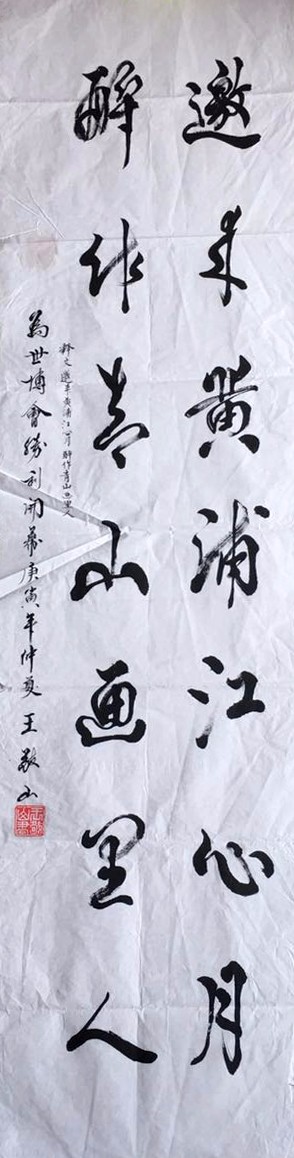 邀来黄浦江心月
醉作青山画里人
释文 邀来黄浦江心月 醉作青山画里人
為世博會勝利開幕庚寅年仲夏 王敬山